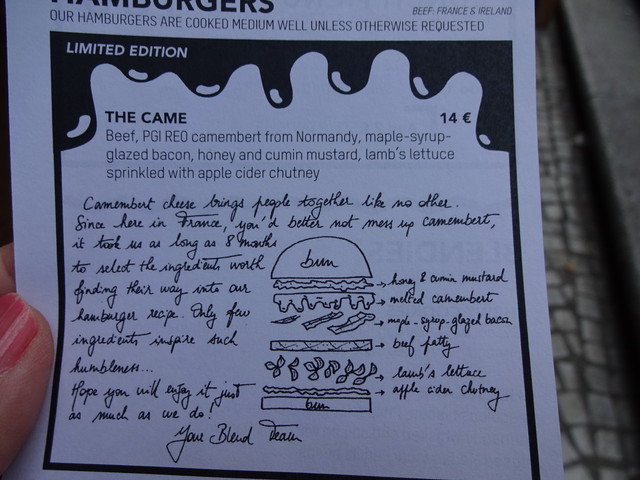 HAMBURGERS
BEEF: FRANCE & IRELAND
OUR HAMBURGERS ARE COOKED MEDIUM WELL UNLESS OTHERWISE REQUESTED
LIMITED EDITION
THE CAME 14 €
Beef, PGI REO camembert from Normandy, maple-syrup-
glazed bacon, honey and cumin mustard, lamb's lettuce
sprinkled with apple cider chutney
Camembert cheese brings people together like no other.
Since here in France, you'd better not mess up camembert,
it took us as long as 8 months
to select the ingredients worth
finding their way into our
hamburger recipe. Only few
ingredients inspire such
humbleness...
Hope you will enjoy it just
as much as we do!
Your Blend Team
bun
honey & cumin mustard
melted camembert
maple-syrup-glazed bacon
beef patty
lamb's lettuce
apple cider chutney
bun